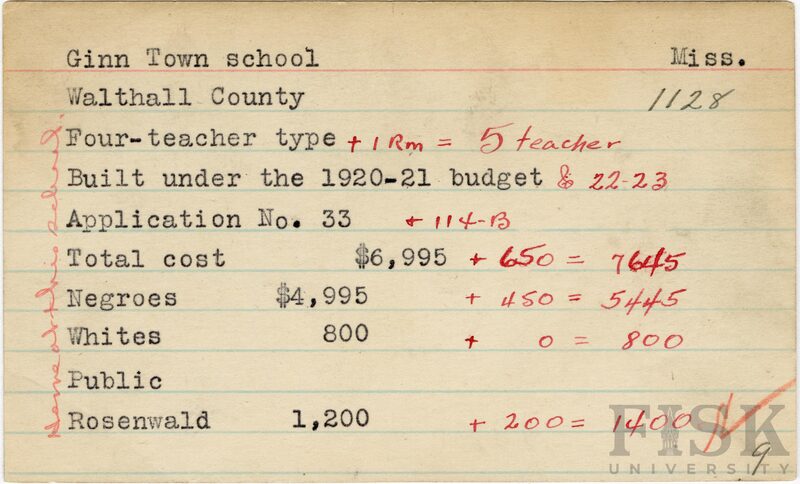 Ginn Town school Miss.
Walthall County 1128
Four-teacher type + 1 Rm = 5 teacher
Built under the 1920-21 budget & 22-23
Application No. 33 + 114-B
Total cost $6,995 + 650 = 7645
Negroes $4,995 + 450 = 5445
Whites 800 + 0 = 800
Public
Rosenwald 1,200 + 200 = 1400
9
FISK
UNIVERSITY
school.